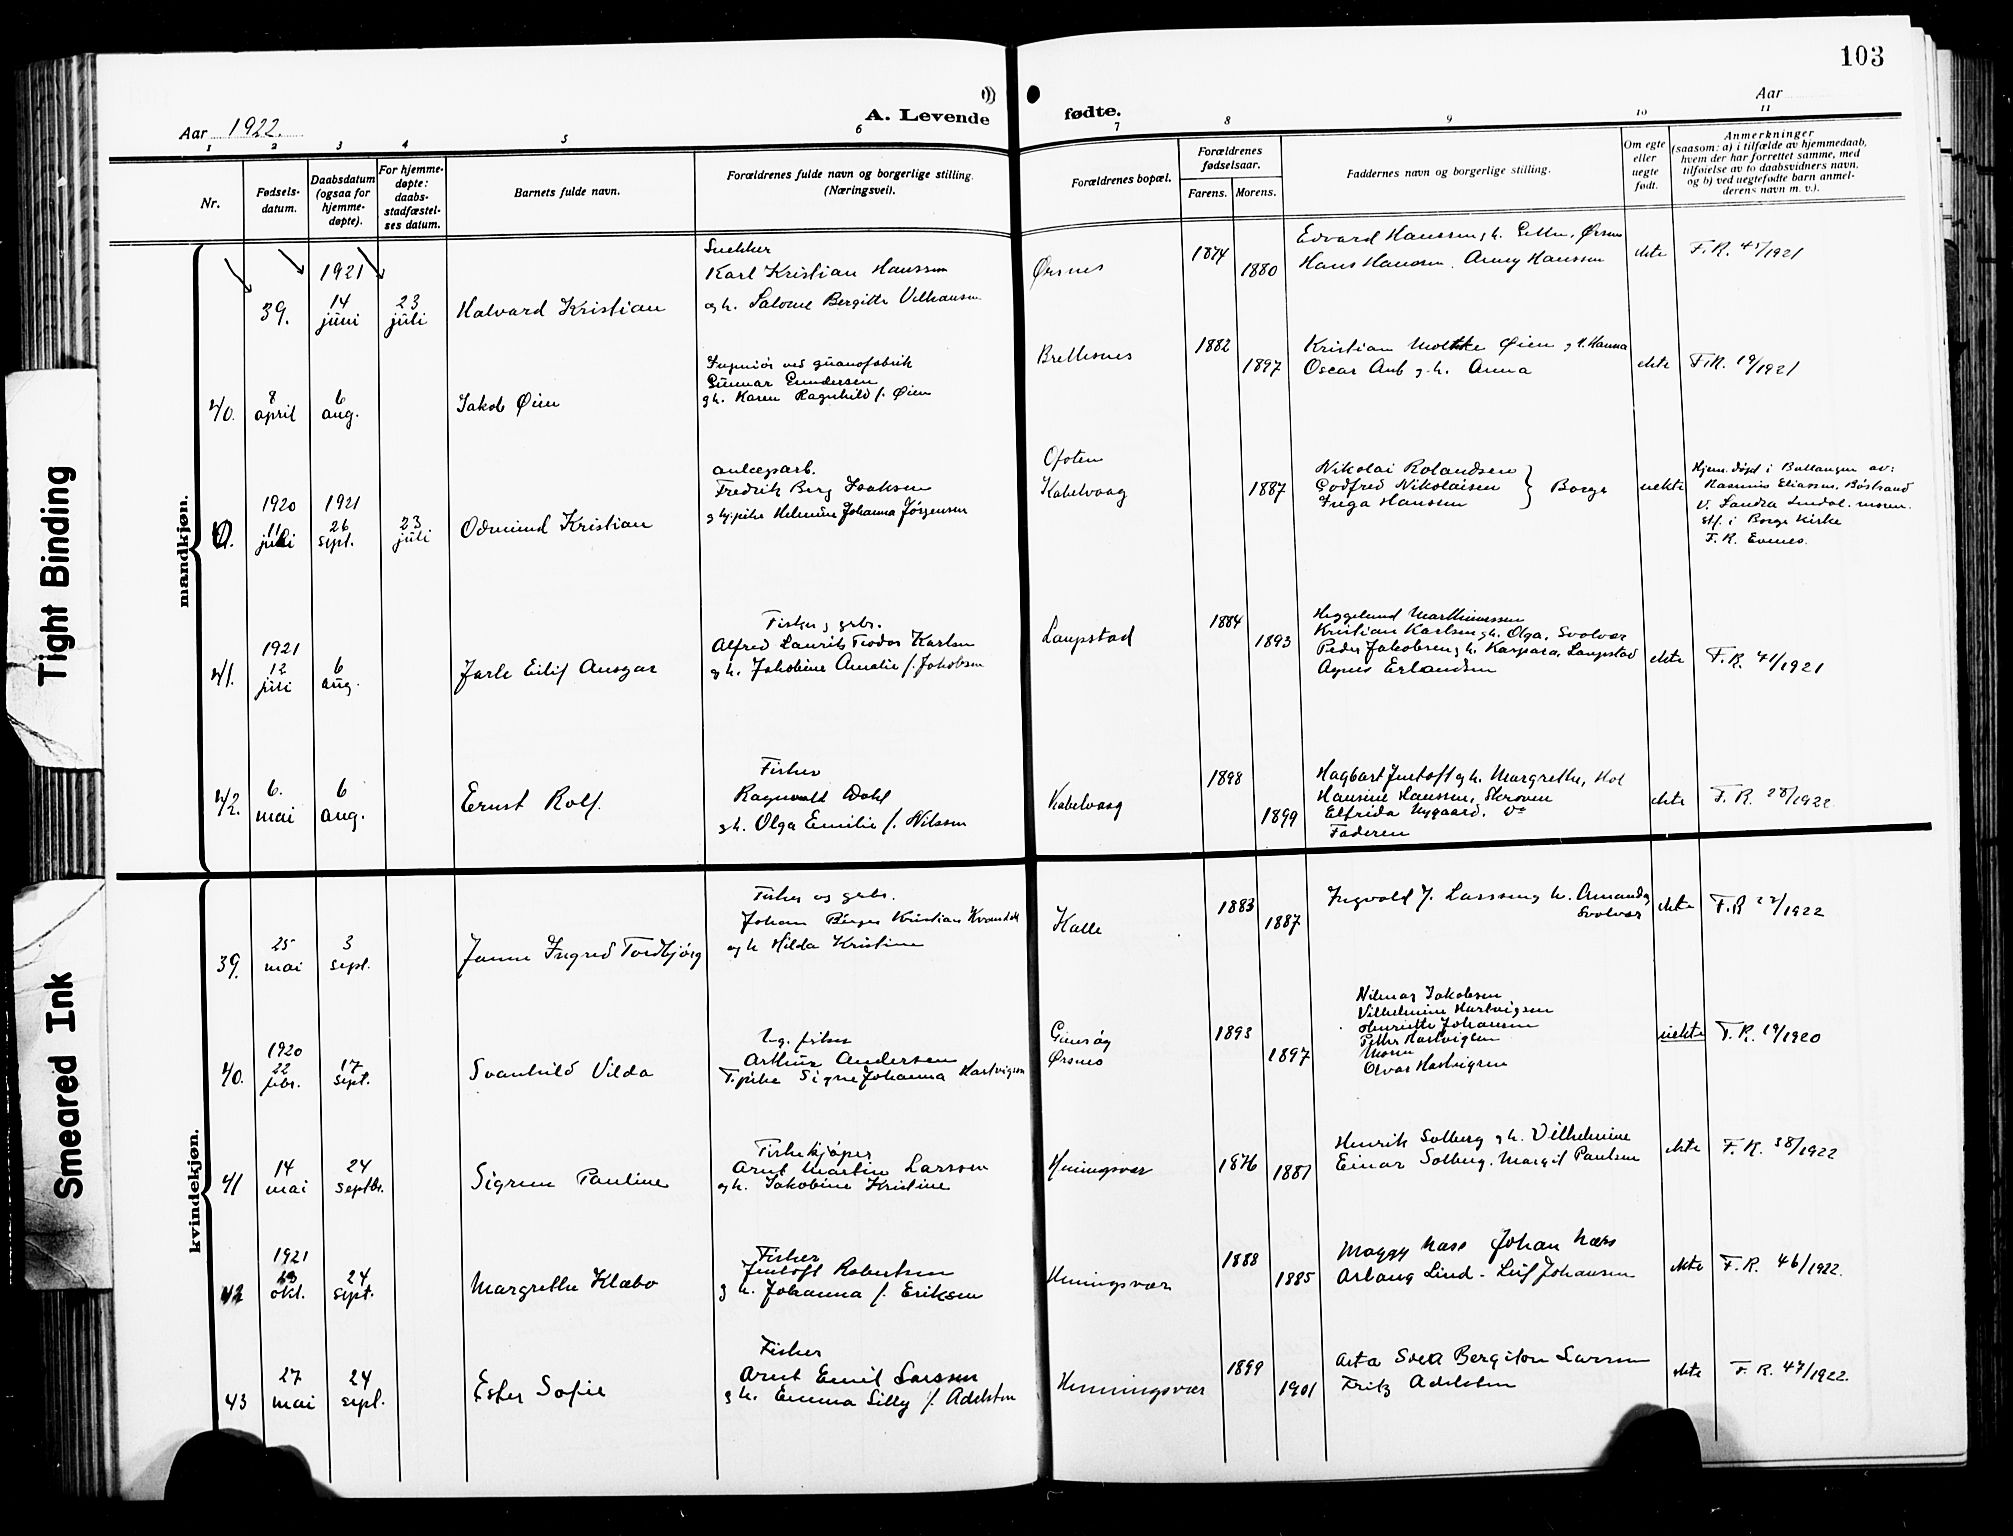 103
Aar 1922.
A. Levende
fødte.
Aar
1 2 3 4 5 6 7 8 9 10 11
Nr.
Fødsels-
datum.
Daabsdatum
(ogsaa for
hjemme-
døpte).
For hjemme-
døpte:
daabs-
stadfæstel-
ses datum.
Barnets fulde navn.
Forældrenes fulde navn og borgerlige stilling.
(Næringsvei).
Forældrenes bopæl.
Forældrenes
fødselsaar.
Farens. Morens.
Faddernes navn og borgerlige stilling.
Om egte
eller
uegte
født.
Anmerkninger
(saasom: a) i tilfælde av hjemmedaab,
hvem der har forrettet samme, med
tilføielse av to daabsvidners navn,
og b) ved uegtefødte barn anmel-
derens navn m. v.).
mandkjøn.
39.
1921
14
juni
23
juli
Halvard Kristian
Snekker
Karl Kristian Hanssen
og h. Salome Bergitte
Ørsnes
1874
1880
Edvard Hanssen g h. Ørsnes
Hans Hansen. Hanssen
ekte
F. R. 45/1921
40.
8
april
6
aug.
Jakob Øien
Ingeniør ved guanofabrik
Gunnar Gundersen
g h. Karen Ragnhild f. Øien
Brettesnes
1882
1897
Kristian Øien g h. Hanna
Oscar Aub g h. Anna
ekte
F. R. 19/1921
1920
11
juli
1921
26
sept.
23
juli
Odmund Kristian
anlægsarb.
Fredrik Berg Isaksen
g tj.pike Helmine Johanna Jørgensen
Ofoten
Kabelvaag
1887
Nikolai Rolandsen
Godfred Nikolaisen
Inga Hansen
} Borge
uekte
Hjem. døpt i Ballangen av:
Rasmus Eliassen, Bøstrand
v. Sandra Lindal. moren.
stf. i Borge Kirke
F. R. Evenes.
41.
1921
12
juli
6
aug.
Jarle Eilif Ansgar
Fisker g grbr.
Alfred Laurits Teodor Karlsen
g h. Jakobine Amalie f. Jakobsen
Laupstad
1884
1893
Heggelund Marthinussen
Kristian Karlsen g h. Olga, Svolvær
Peder Jakobsen g h. Kaspara, Laupstad
Agnes Erlandsen
ekte
F. R. 41/1921
42.
6.
mai
6
aug.
Ernst Rolf.
Fisker
Ragnvald Dahl
g h. Olga Emilie f. Nilssen
Kabelvaag
1898
1899
Hagbart Jentoft g h. Margrethe, Hol
Hansine Hanssen, Skroven
Elfrida Nygaard, do
Faderen
ekte
F. R. 28/1922
kvindekjøn.
39.
25
mai
3
sept.
Janna Ingred Tordbjørg
Fisker og grbr.
Johan Birger Kristian
og h Hilda Kristine
Kalle
1883
1887
Ingvald J. Larssen g h. Amanda,
Svolvær
ekte
F. R. 22/1922
40.
1920
22
febr.
17
sept.
Svanhild Vilda
Ug. fisker
Arthur Andersen
T.pike Signe Johanna Hartvigsen
Gimsøy
Ørsnes
1893
1897
Hilmar Jakobsen
Vilhelmine Hartvigsen
Henriette Johansen
Petter Hartvigsen
Moren
Olvar Hartvigsen
uekte
F. R. 19/1920
41
14
mai
24
septbr.
Sigrun Pauline
Fiskekjøper
Arnt Martin Larssen
og h. Jakobine Kristine
Henningsvær
1876
1881
Henrik Solberg g h. Vilhelmine
Einar Solberg. Margit Paulsen
ekte
F. R. 38/1922
42
1921
okt.
24
sept.
Margrethe Klæbo
Fisker
Jentoft Robertsen
g h. Johanna f. Eriksen
Henningsvær
1888
1885
Maggy Næss Johan Næss
Aslaug Lind - Leif Johansen
ekte
F. R. 46/1922.
43
27
mai
24
sept.
Ester Sofie
Fisker
Arnt Emil Larssen
g h. Emma Silly f. Adelsten
Henningsvær
1899
1901
Asta Svea Bergiton Larssen
Fritz Adelsten
ekte
F. R. 47/1922.
Tight Binding
Smeared Ink